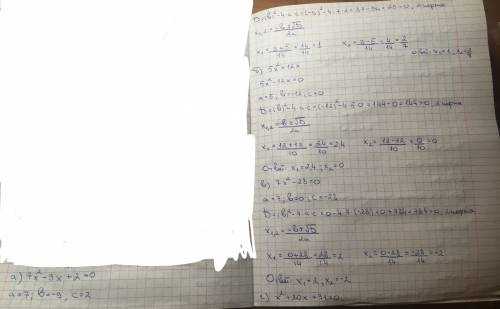 а) 7x²-9x+2=0
a=7; b=-9, c=2
D=(b)²-4ac=(-9)²-4·7·2=81-56=25>0, 2 корня
x₁,₂=-b±√D/2a
x₁=9+5/14=14/14=1 x₂=9-5/14=4/14=2/7
Ответ: x₁=1, x₂=2/7
б) 5x²=12x
5x²-12x=0
a=5; b=-12; c=0
D=(b)²-4ac=(-12)²-4·5·0=144-0=144>0, 2 корня
x₁,₂=-b±√D/2a
x₁=12+12/10=24/10=2,4 x₂=12-12/10=0/10=0
Ответ: x₁=2,4; x₂=0
в) 7x²-28=0
a=7; b=0; c=-28
D=(b)²-4ac=0-4·7·(-28)=0+784=784>0, 2 корня
x₁,₂=-b±√D/2a
x₁=0+28/14=28/14=2 x₂=0-28/14=-28/14=-2
Ответ: x₁=2; x₂=-2
г) x²+20x+91=0